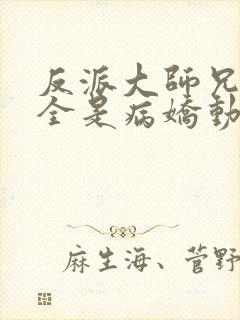 反派大師兄
全是病嬌動
麻生海、菅野